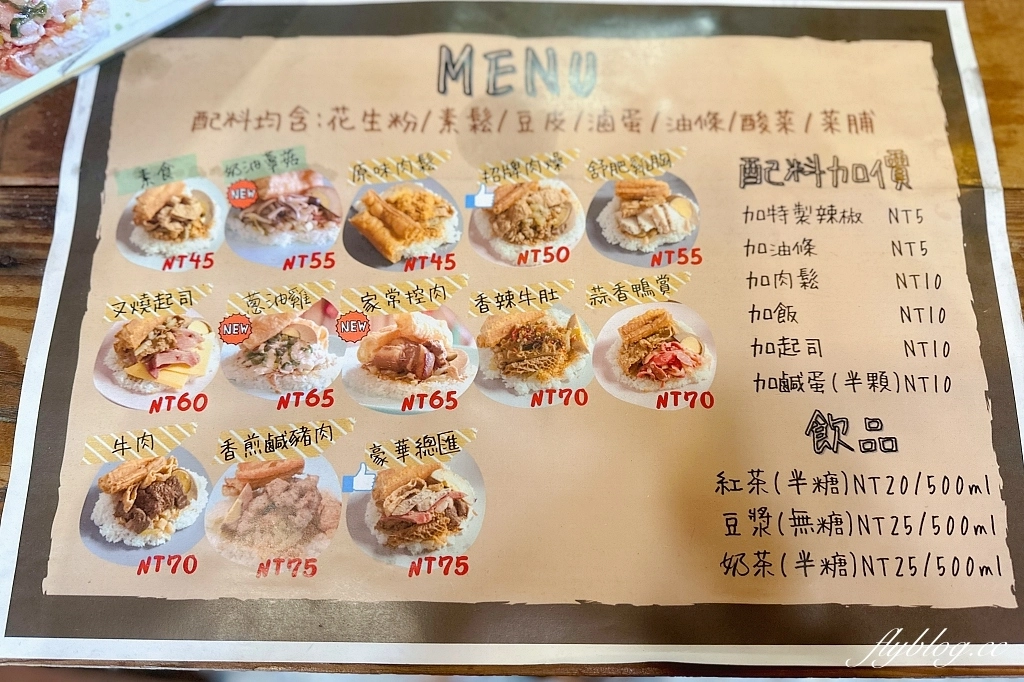 MENU
配料均含:花生粉/素鬆/豆皮/滷蛋/油條/酸菜/菜脯
素食
NT45
奶油蕈菇
NEW
NT55
原味肉鬆
NT45
招牌肉燥
NT50
舒肥雞胸
NT55
叉燒起司
NT60
蔥油雞
NEW
NT65
家常控肉
NEW
NT65
香辣牛肚
NT70
蒜香鴨賞
NT70
牛肉
NT70
香煎鹹豬肉
NT75
豪華總匯
NT75
配料加價
加特製辣椒 NT5
加油條 NT5
加肉鬆 NT10
加飯 NT10
加起司 NT10
加鹹蛋(半顆)NT10
飲品
紅茶(半糖)NT20/500ml
豆漿(無糖)NT25/500ml
奶茶(半糖)NT25/500ml
flyblog.cc